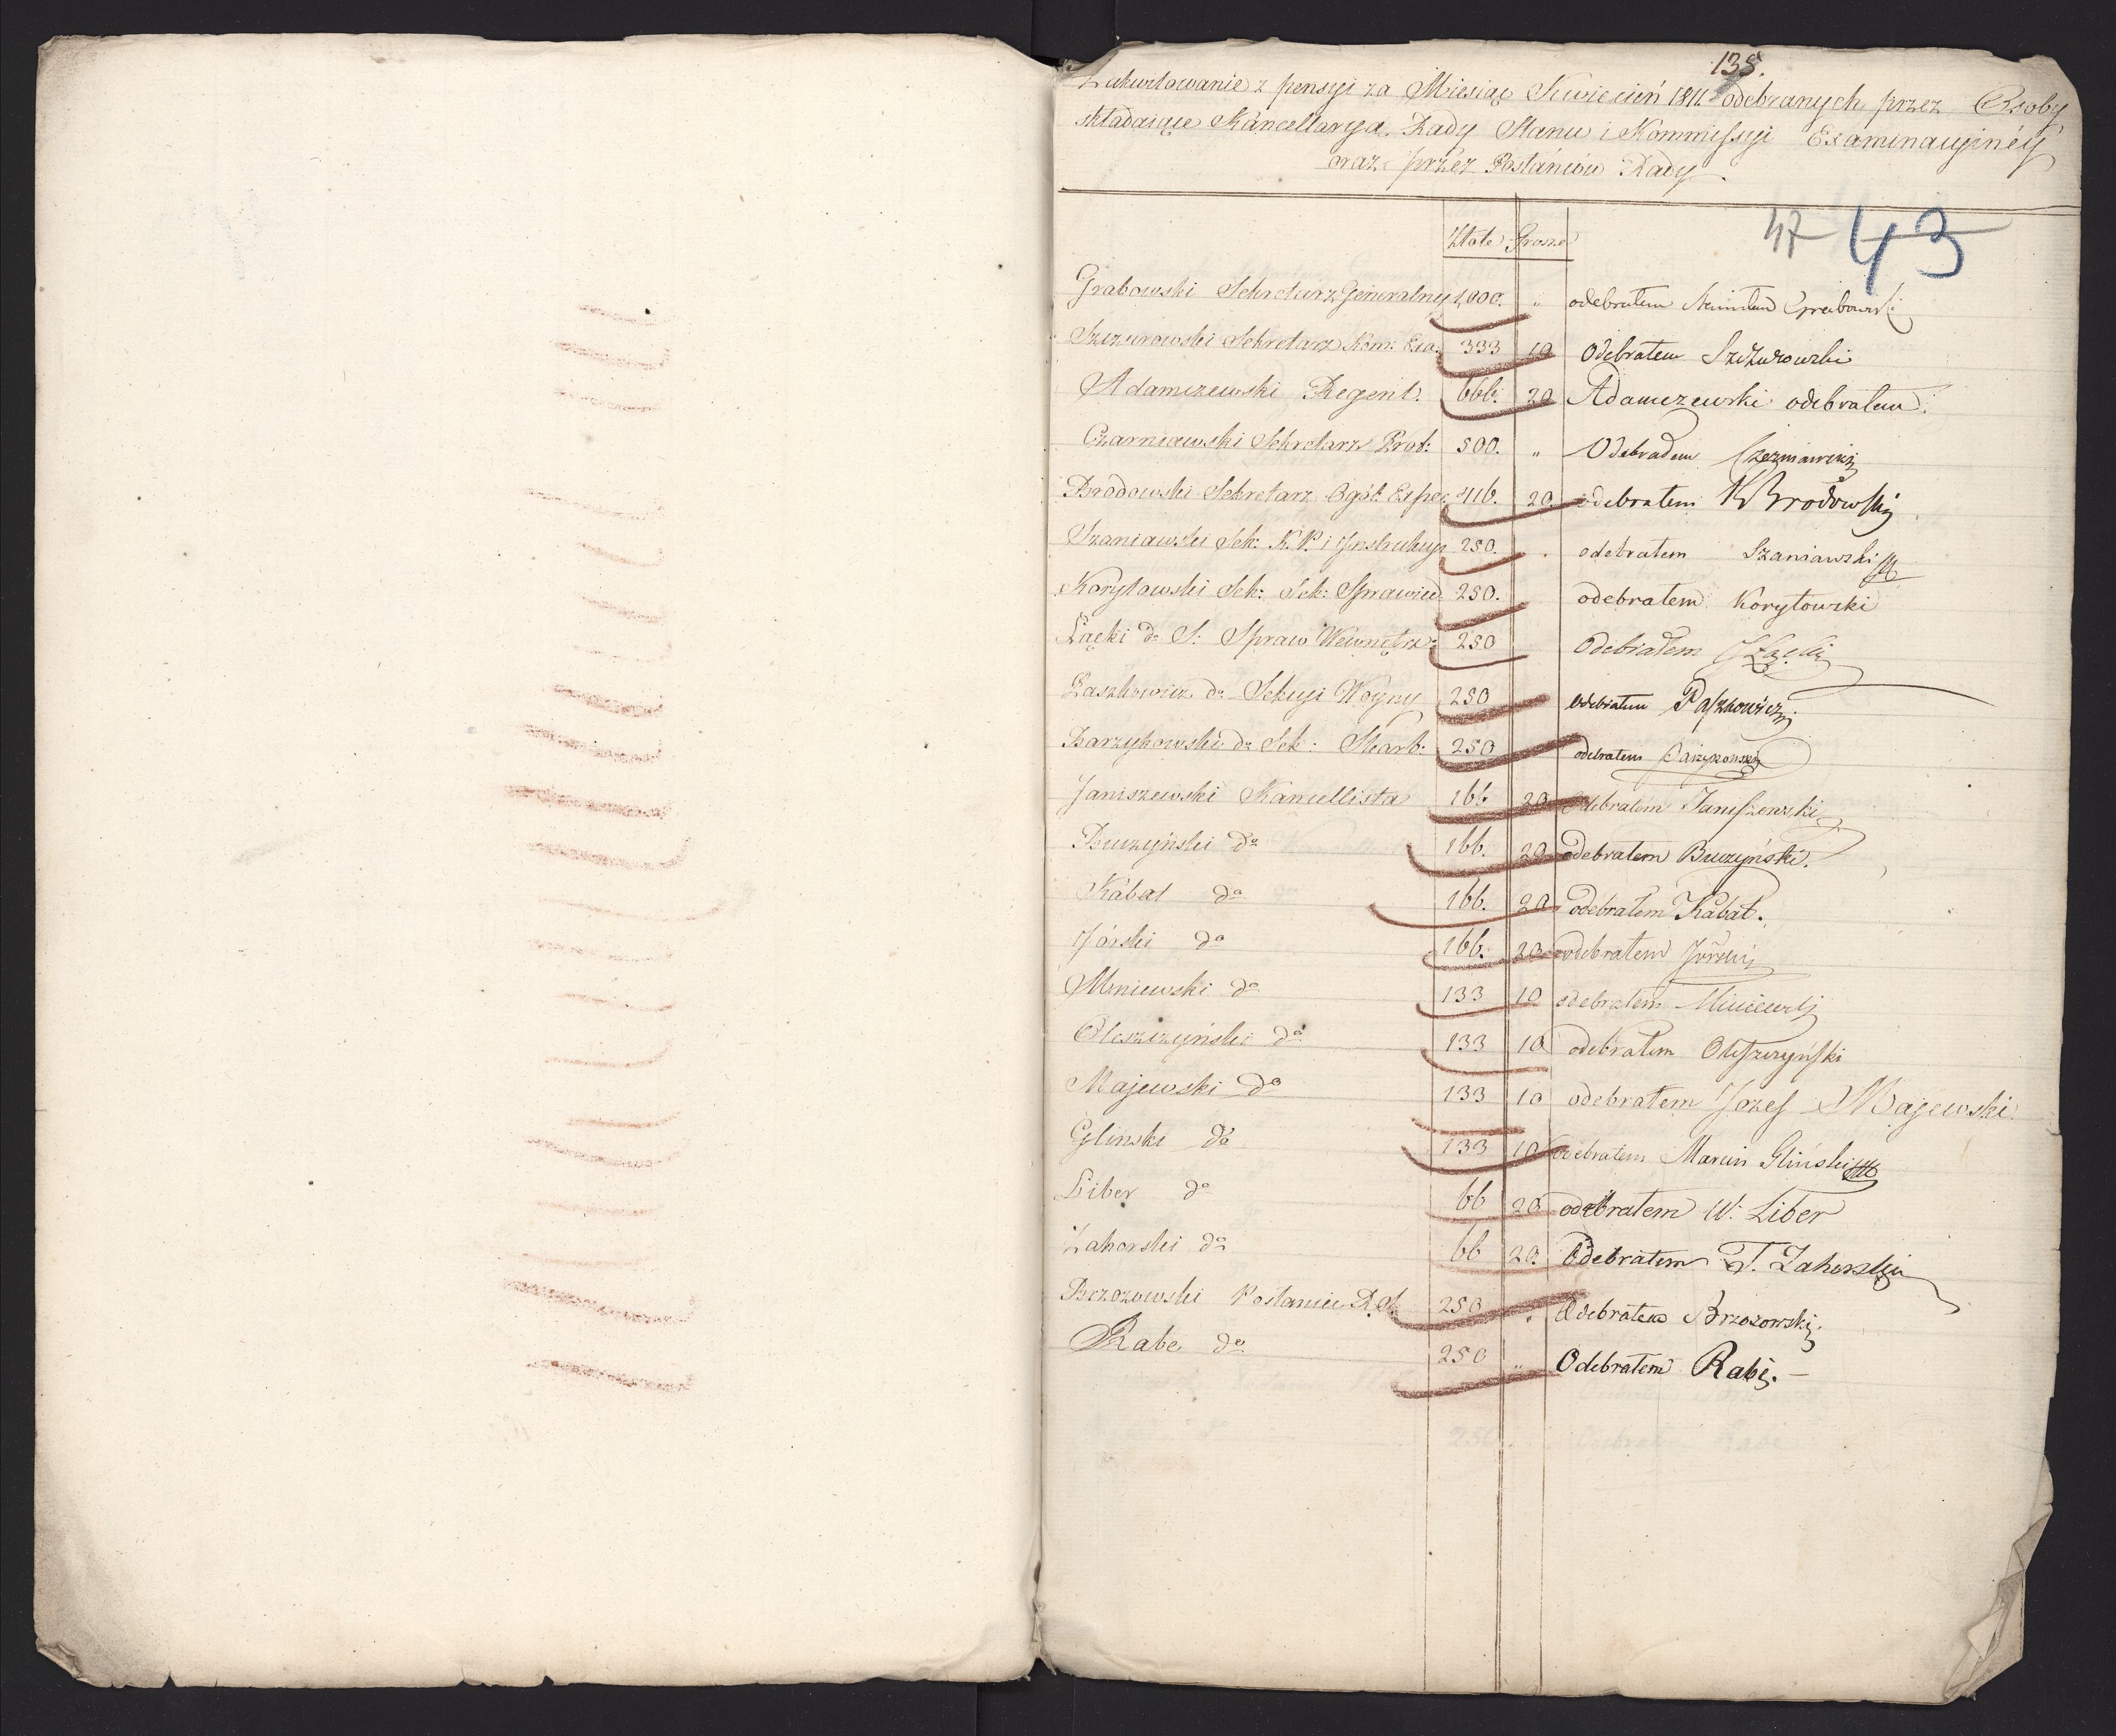 135.
Zakwitowanie z pensyi za Miesiąc Kwiecień 1811 odebranych przez Osoby
składaiące Kancellaryą Rady Stanu i Kommissyi Examinacyinéy
oraz przez Posłańców Rady.
47 43
Złote Grosze
Grabowski Sekretarz Generalny 1,000. " odebrałem Grabowski
Szczurowski Sekretarz Kom: Exa: 333 10 Odebrałem Szczurowski
Adamczewski Regent. 666. 20 Adamczewski odebrałem.
Czarniawski Sekretarz Prot: 500. " Odebrałem Czarniawski
Brodowski Sekretarz Ogół: Expe: 416. 20. odebrałem K Brodowski
Szaniawski Sek: K. P. i Instrukcyi 250. . odebrałem Szaniawski
Korytowski Sek: Sek: Sprawied: 250. odebrałem Korytowski
Łącki do S: Spraw Wewnętrz: 250 Odebrałem Łącki
Paszkowicz do Sekcyi Woyny 250 odebrałem Paszkowicz
Barzykowski do Sek: Skarb: 250 odebrałem Barzykowski
Janiszewski Kancellista 166 20 Odebrałem Janiszewski
Buczyński do 166. 20 odebrałem Buczyński.
Kabat do 166. 20 odebrałem Kabat.
Jórski do 166. 20 odebrałem Jórski
Mniewski do 133 10 odebrałem Mniewski
Oleszczyński do 133 10 odebrałem Oleszczyński
Majewski do 133 10 odebrałem Jozef Majewski
Glinski do 133 10 odebrałem Marcin Gliński
Liber do 66 20 odebrałem W: Liber
Zahorski do 66 20. Odebrałem T. Zahorski
Brzozowski Posłaniec R. S. 250 . Odebrałem Brzozowski.
Rabe do 250 " Odebrałem Rabe. —